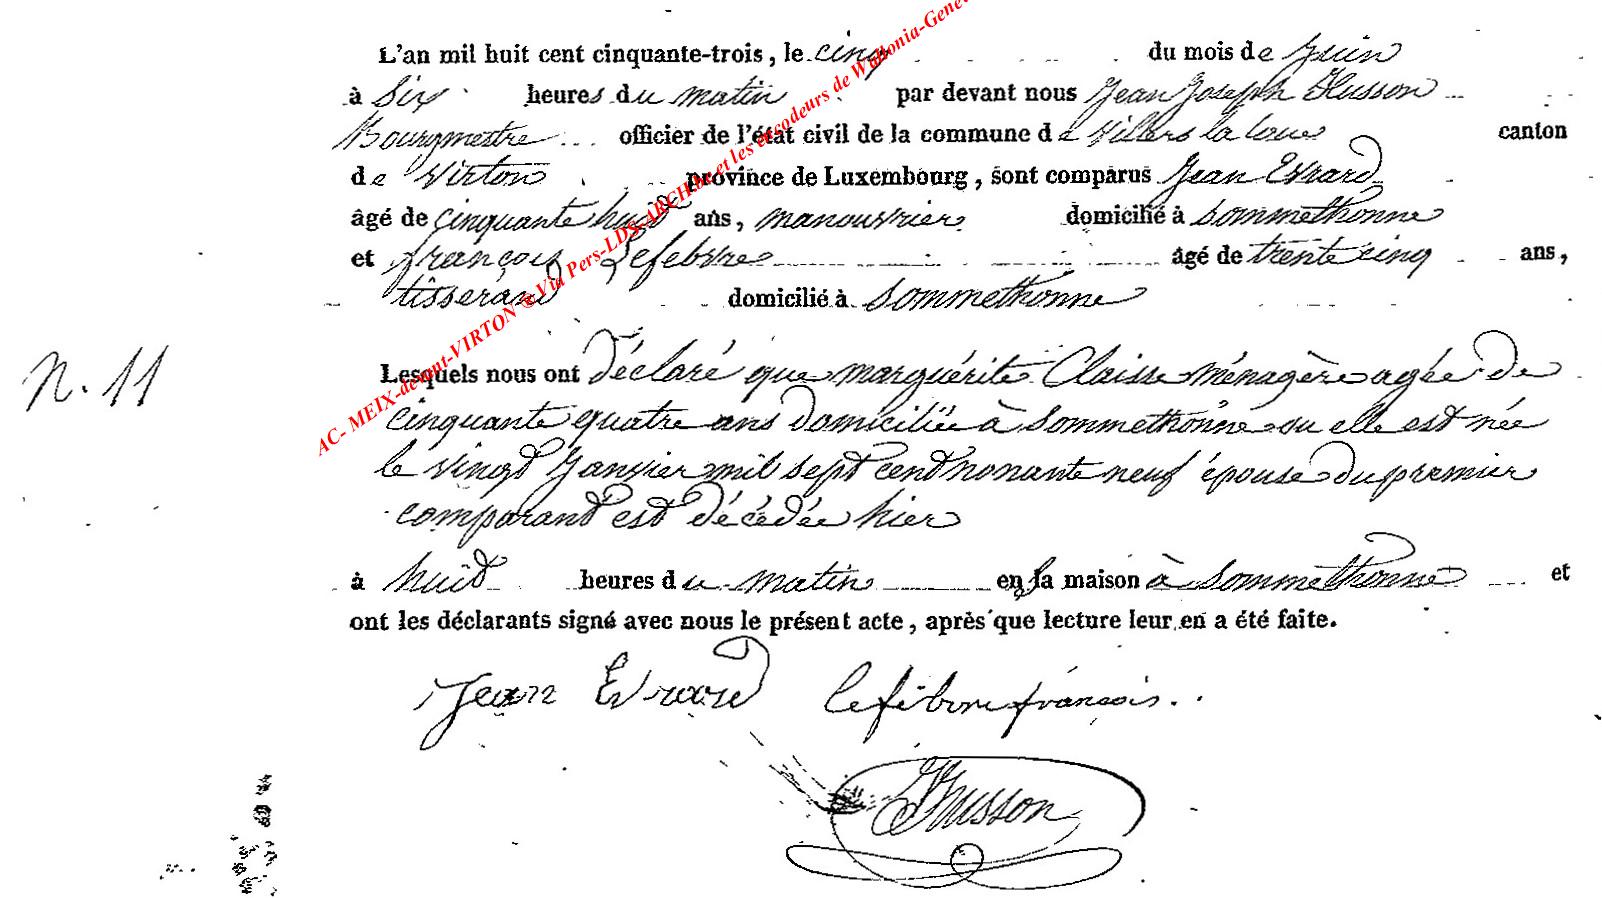 L'an mil huit cent cinquante-trois, le cinq du mois de Juin
à Six heures du matin par devant nous Jean Joseph Husson
Bourgmestre officier de l'état civil de la commune de Villers la loue canton
de Virton province de Luxembourg, sont comparus Jean Evrard
âgé de cinquante huit ans, manouvrier domicilié à Sommethonne
et françois Lefebvre âgé de trente cinq ans,
tisserand domicilié à Sommethonne
N. 11
Lesquels nous ont déclaré que marguérite Claisse ménagère agée de
cinquante quatre ans domiciliée à Sommethonne ou elle est née
le vingt Janvier mil sept cent nonante neuf épouse du premier
comparant est décédée hier
à huit heures du matin en sa maison à Sommethonne et
ont les déclarants signé avec nous le présent acte, après que lecture leur en a été faite.
Jean Evrard lefebvre françois
JHusson
AC- MEIX-devant-VIRTON ® Via Pers-LDS-ARCH.be et les encodeurs de Wallonia-Gene